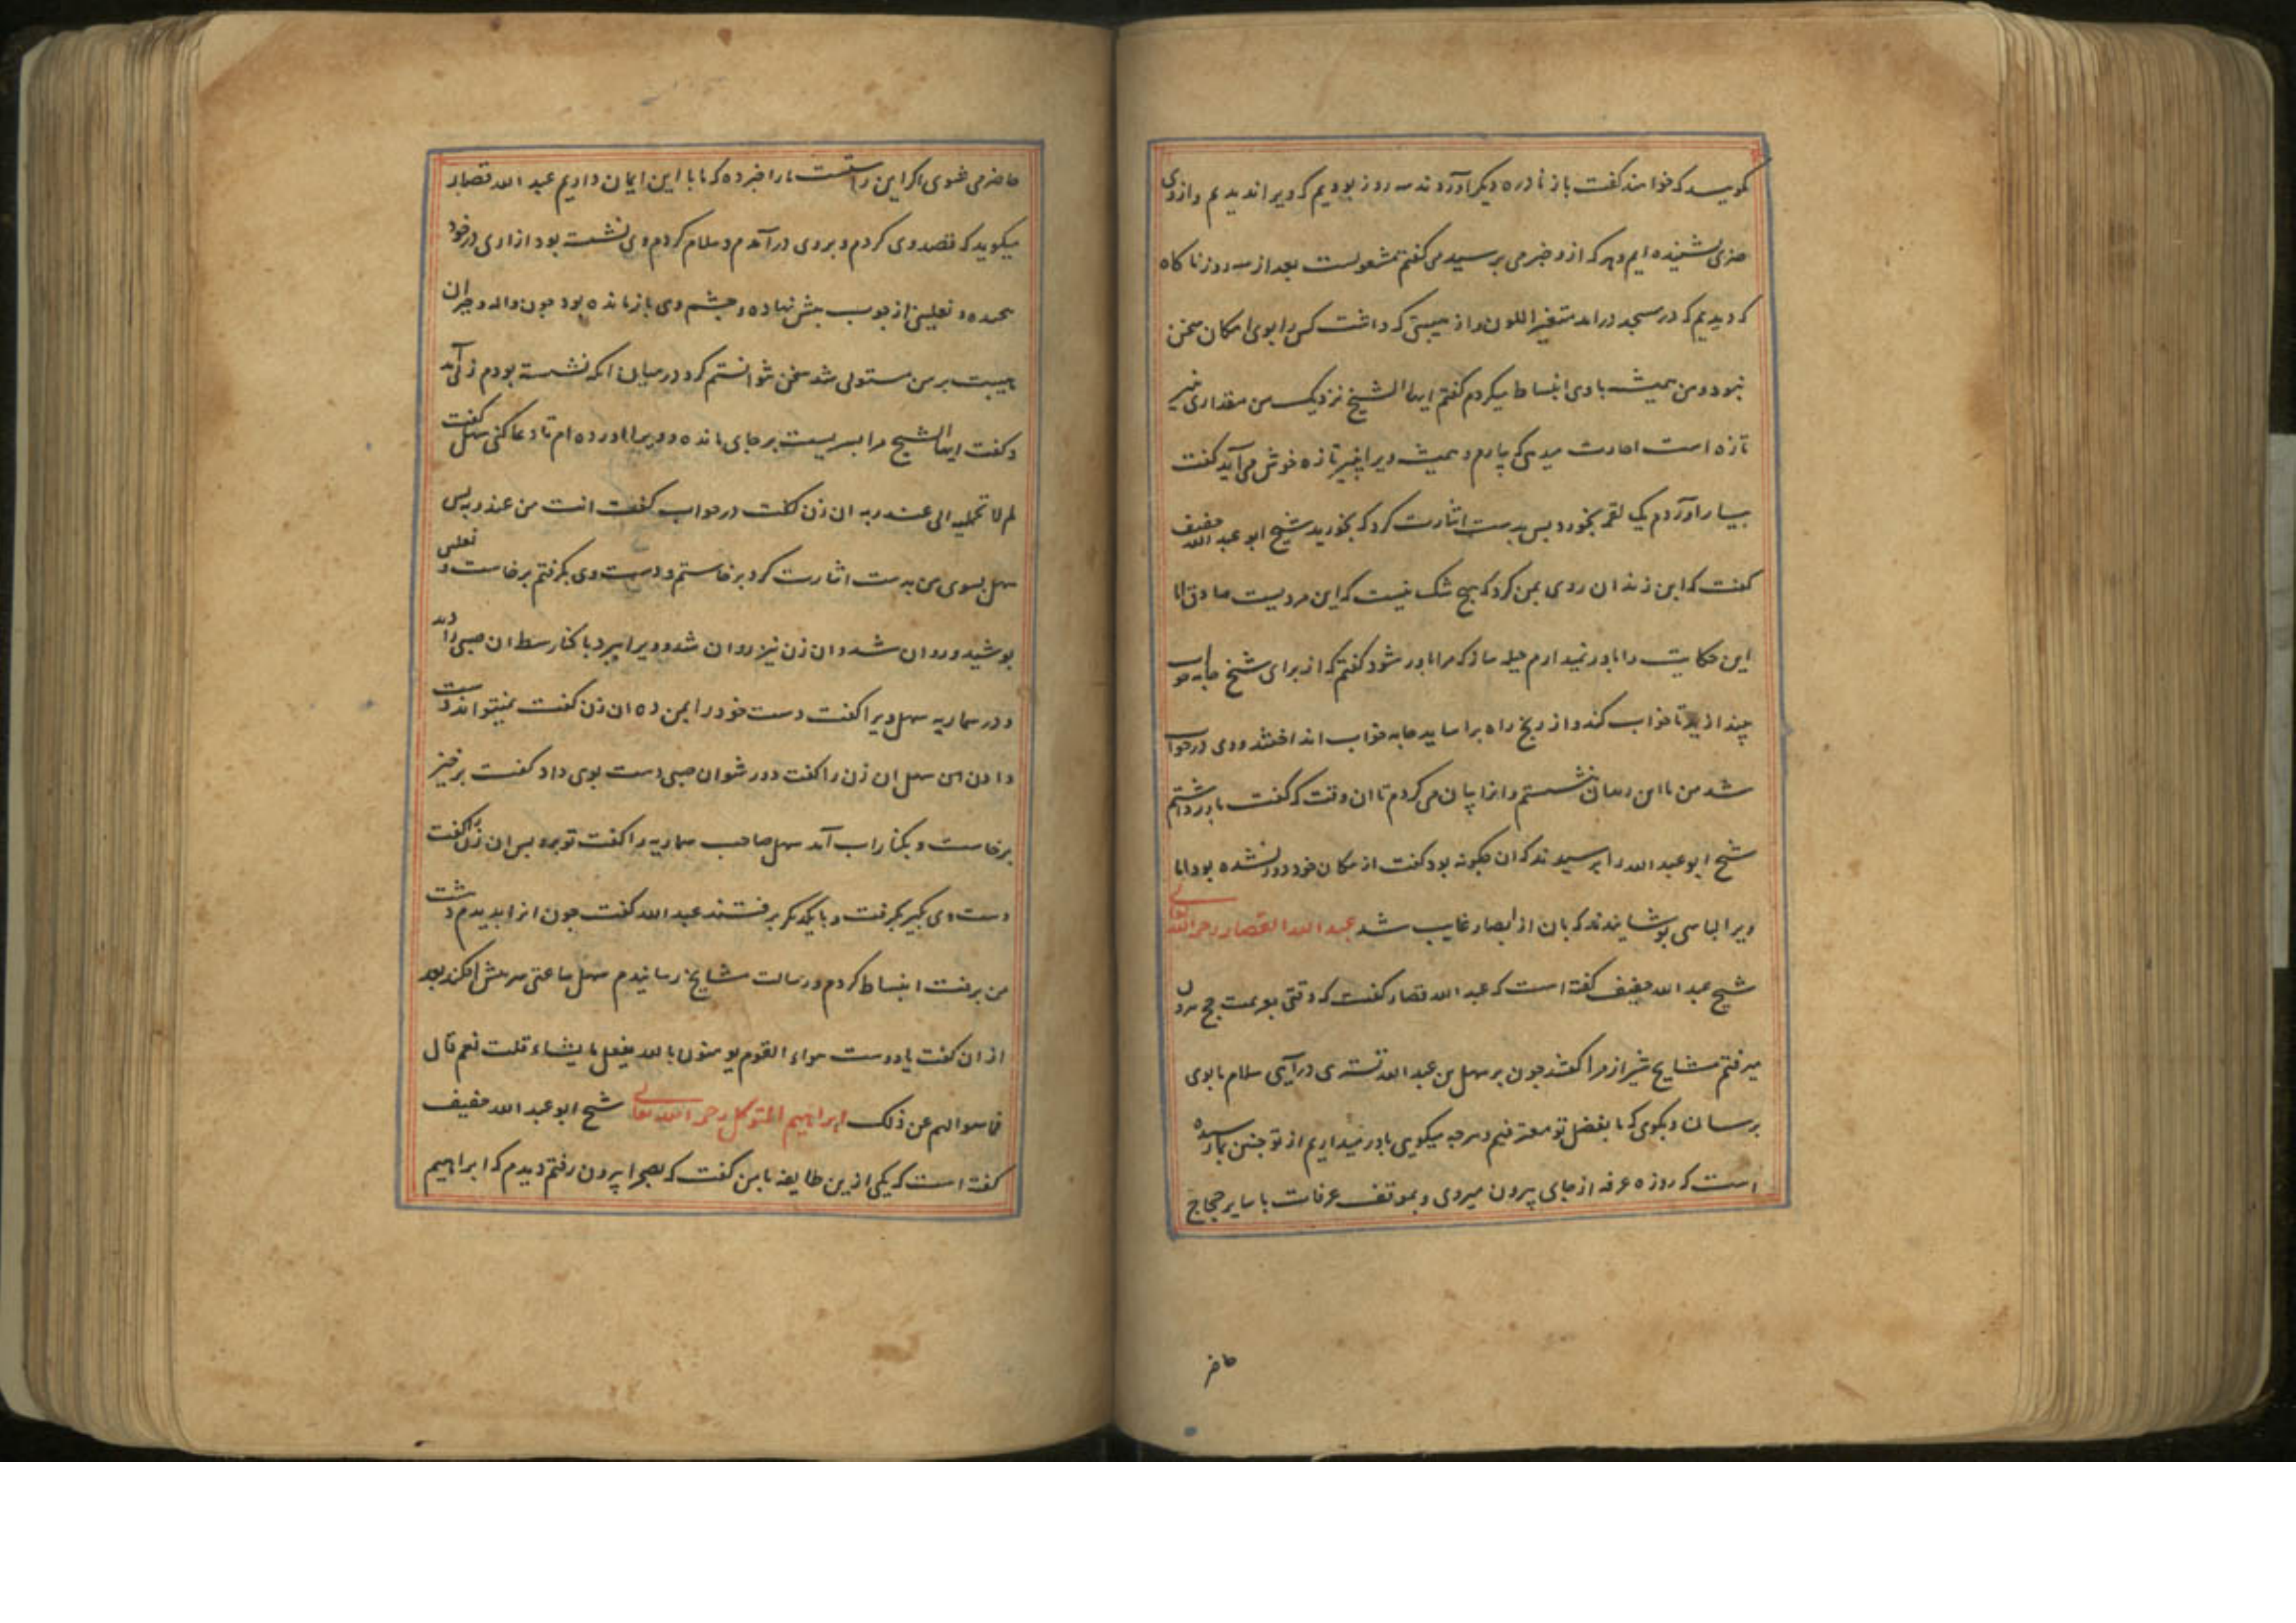 گویید که خواهند گفت باز نادره دیگر آوردند سه روز بودیم که ویرا ندیدیم و از وی
خبری نشنیده ایم و هر که از و خبر می پرسید می گفتم مشغولست بعد از سه روز ناگاه
که دیدیم که در مسجد درآمد متغیر اللون و از هیبتی که داشت کس را با وی امکان سخن
نبود و من همیشه با وی انبساط میکردم گفتم ایها الشیخ نزدیک من مقداری پنیر
تازه است اجازت میدهی که بیارم و همیشه ویرا پنیر تازه خوش می آید گفت
بیار آوردم یک لقمه بخورد پس بدست اشارت کرد که بخورید شیخ ابو عبد الله خفیف
گفت که این زندان روی بمن کرد که هیچ شک نیست که این مردیست صادق اما
این حکایت را باور نمیدارم حیله ساز که مرا باور شود گفتم که از برای شیخ جامه خواب
چند ازید تا خواب کند و از رنج راه برآساید جامه خواب انداختند و وی در خواب
شد من با این نشستم و انرا بیان می کردم تا ان وقت که گفت باور داشتم
شیخ ابو عبد الله را پرسیدند که ان چگونه بود گفت از مکان خود دور نشده بود اما
ویرا لباسی پوشانیدند که بان از ابصار غایب شد عبد الله القصار رحمه الله تعالی
شیخ عبد الله خفیف گفته است که عبد الله قصار گفت که وقتی بعزیمت حج بیرون
میرفتم مشایخ شیراز مرا گفتند چون بر سهل بن عبد الله تستری درآیی سلام ما بوی
برسان و بگوی که ما بفضل تو معترفیم و هرچه میگویی باور میداریم از تو چنین بما رسیده
است که روزه عرفه از جای بیرون میروی و بموقف عرفات با سایر حجاج
حاضر
حاضر می شوی اگر این راستست ما را خبر ده که ما با این ایمان داریم عبد الله قصار
میگوید که قصد وی کردم و بر وی درآمدم و سلام کردم وی نشسته بود ازاری در خود
پیچیده و نعلینی از چوب پیش نهاده و چشم وی باز مانده بود چون واله و حیران
هیبت بر من مستولی شد سخن نتوانستم کرد در میان انکه نشسته بودم زنی آمد
و گفت ایها الشیخ مرا پسریست بر جای مانده و ویرا آورده ام تا دعا کنی سهل گفت
لم لا تحملیه الی عند ربه ان زن گفت در جواب گفت انت من عند ربه پس
سهل بسوی من بدست اشارت کرد برخاستم و دست وی بگرفتم برخاست و نعلین
پوشید و روان شد و ان زن نیز روان شد و ویرا ببرد با کنار شط ان صبی را دید
و در سماریه سهل ویرا گفت دست خود را بمن ده ان زن گفت نمیتواند دست
دادن سهل ان زن را گفت دور شو ان صبی دست بوی داد گفت برخیز
برخاست و بکنار اب آمد سهل صاحب سماریه را گفت تو برو پس ان زن را گفت
دست وی بگیر بگرفت و با یکدیگر برفتند عبد الله گفت چون انرا بدیدم دهشت
من برفت انبساط کردم و رسالت مشایخ رسانیدم سهل ساعتی سر پیش افکند بعد
از ان گفت یا دوست هواء القوم یومنون بالله یفعل ما یشاء قلت نعم قال
فما سوالهم عن ذلک ابراهیم المتوکل رحمه الله تعالی شیخ ابو عبد الله خفیف
گفته است که یکی ازین طایفه با من گفت که بصحرا بیرون رفتم دیدم که ابراهیم